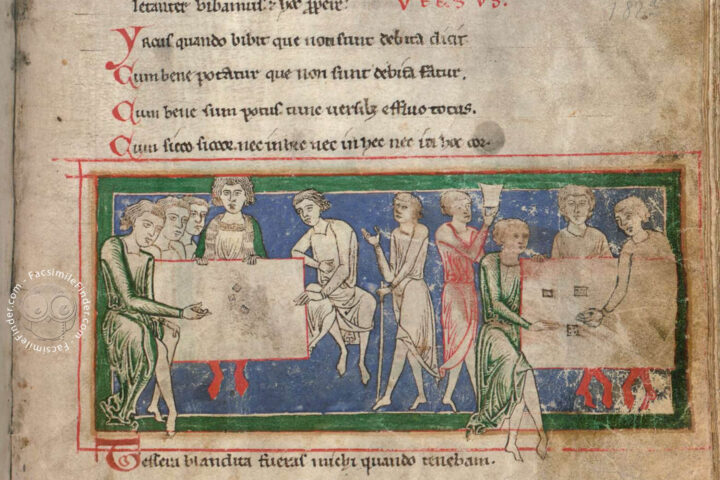 letanter bibamus. & hoc propter. VERSUS.
Yrcus quando bibit que non sunt debita dicit
Cum bene potatur que non sunt debita fatur.
Cum bene sum potus tunc versibus effluo totus.
Cum sicco siccor. nec in hic nec in hec nec in hoc cor.
Tessera blandita fueras michi quando tenebam.
© FacsimileFinder.com